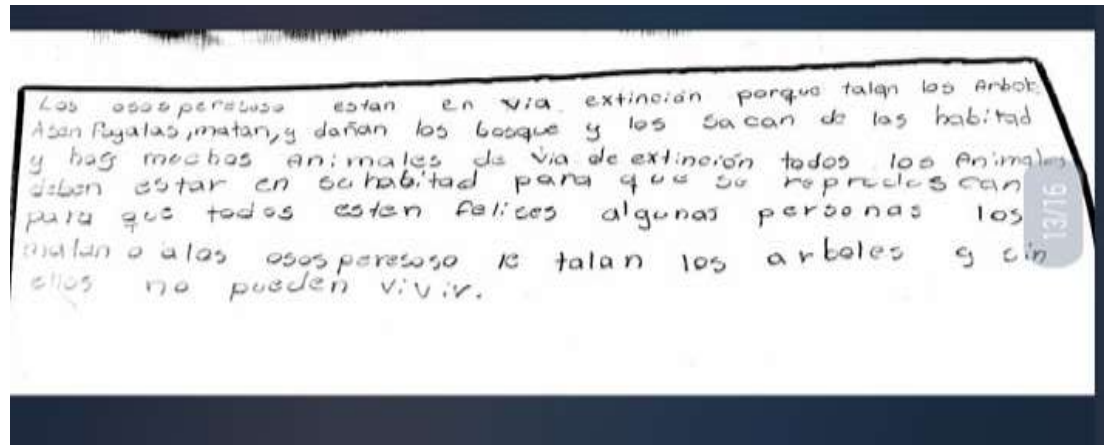 Los osos peresoso estan en via extinción porque talan los Arbol.
Asen Fogatas, matan, y dañan los bosque y los sacan de las habitad
y hay muchos Animales de via de extinción todos los Animales
deben estar en su habitad para que se reproduscan
para que todos esten felices algunas personas los
matan o a los osos peresoso le talan los arboles y sin
ellos no pueden vivir.
13/16